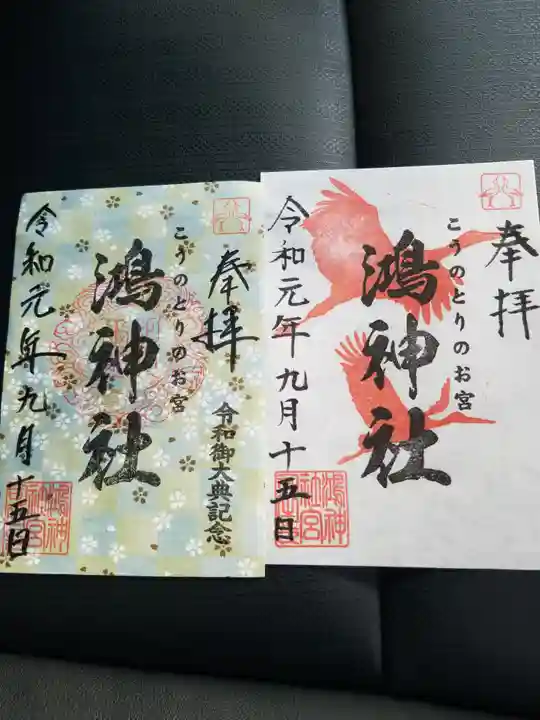 奉拝
こうのとりのお宮
鴻神社
令和元年九月十五日
奉拝
令和御大典記念
こうのとりのお宮
鴻神社
令和元年九月十五日